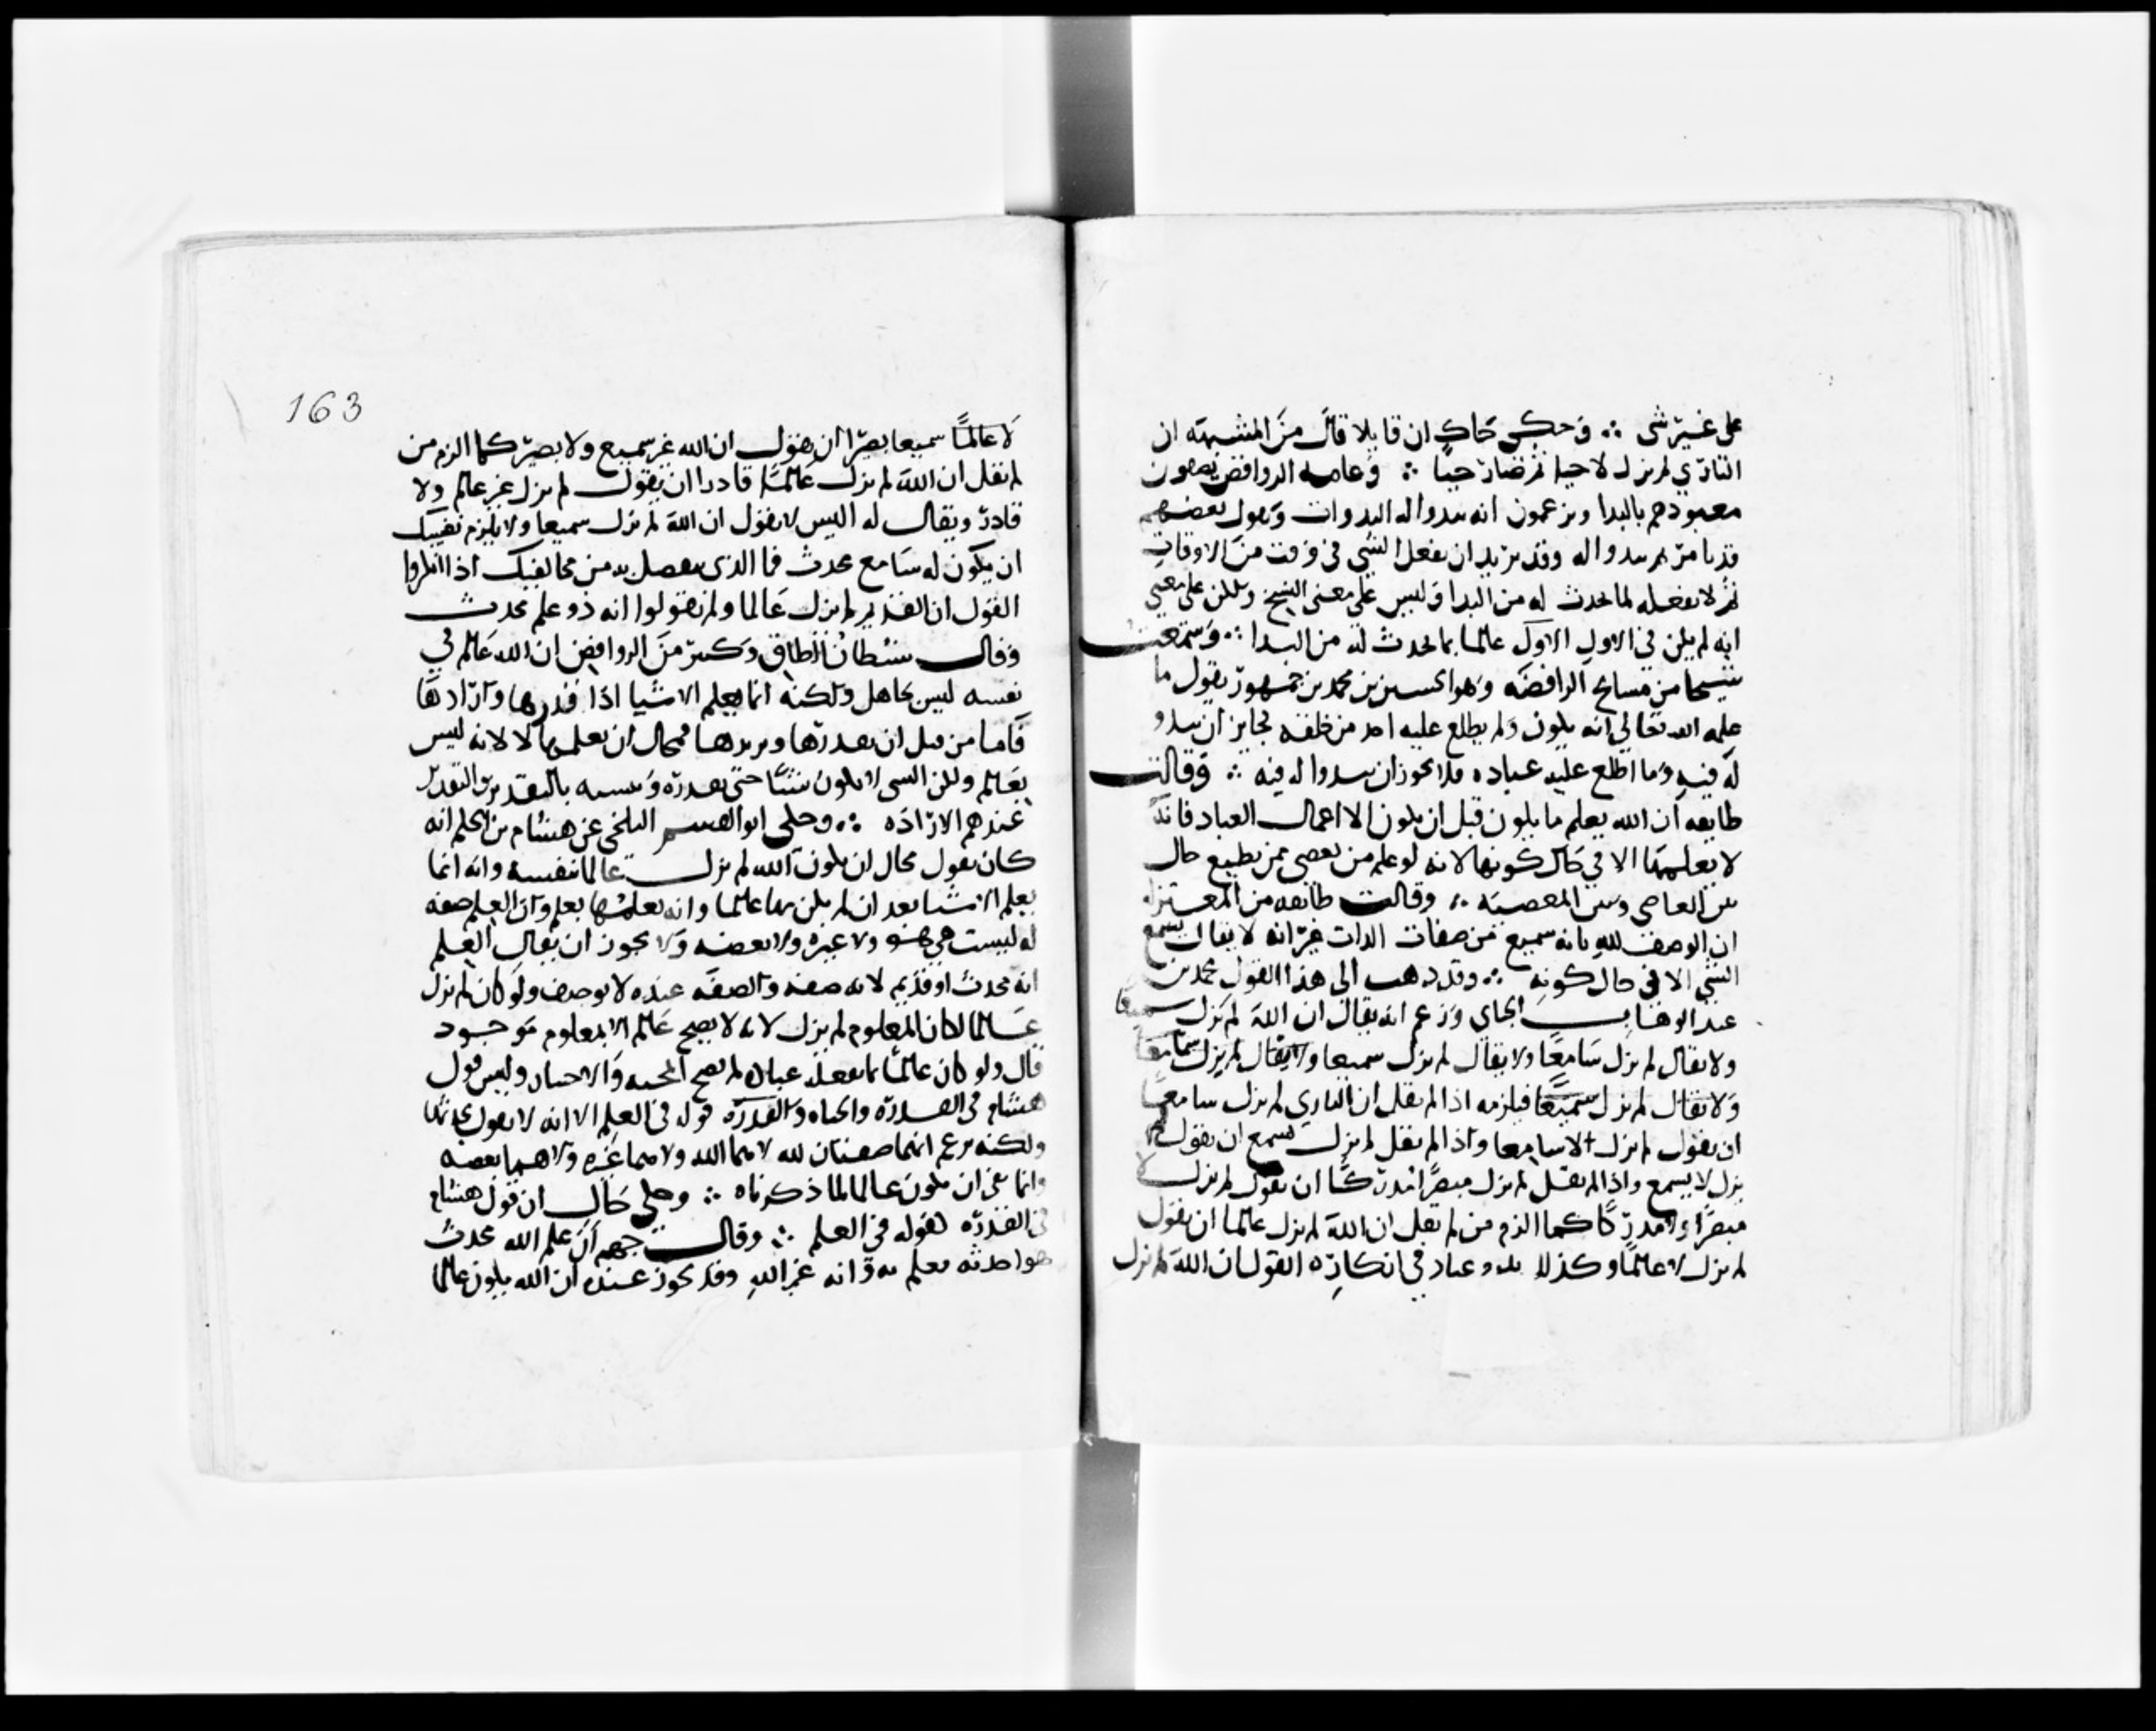 على غير شى ∴ وحكى حاك ان قايلا قال من المشبهه ان
البارى لم يزل لا حيا ثم صار حيا ∴ وعامه الروافض يصفون
معبودهم بالبدا ويزعمون انه تبدوا له البدوات ويقول بعضهم
قد يامر ثم يبدوا له وقد يريد ان يفعل الشى فى وقت من الاوقات
ثم لا يفعله لما يحدث له من البدا وليس على معنى النسخ ولكن على معنى
انه لم يكن فى الاول الاول عالما بما يحدث له من البدا ∴ وسمعت
شيخا من مشايخ الرافضه وهو الحسين بن محمد بن جمهور يقول ما
علمه الله تعالى انه يكون ولم يطلع عليه احد من خلقه فجايز ان يبدو
له فيه وما اطلع عليه عباده فلا يجوز ان يبدوا له فيه ∴ وقالت
طايفه ان الله يعلم ما يكون قبل ان يكون الا اعمال العباد فانه
لا يعلمها الا فى حال كونها لانه لو علم من يعصى ممن يطيع حال
بين العاصى وبين المعصيه ∴ وقالت طايفه من المعتزله
ان الوصف لله بانه سميع من صفات الذات غير انه لا يقال يسمع
الشى الا فى حال كونه ∴ وقد ذهب الى هذا القول محمد بن
عبد الوهاب الجباى وزعم انه يقال ان الله لم يزل سميعا
ولا يقال لم يزل سامعا ولا يقال لم يزل سميعا ولا يقال لم يزل سامعا
ولا يقال لم يزل سميعا فيلزمه اذا لم يقل ان البارى لم يزل سامعا
ان يقول لم يزل لا سامعا واذا لم يقل لم يزل يسمع ان يقول لم
يزل لا يسمع واذا لم يقل لم يزل مبصرا مدركا ان يقول لم يزل لا
مبصرا ولا مدركا كما الزم من لم يقل ان الله لم يزل عالما ان يقول
لم يزل لا عالما وكذلك يلزم عباد فى انكاره القول ان الله لم يزل
163
لا عالما سميعا بصيرا ان يقول ان الله غير سميع ولا بصير كما الزم من
لم يقل ان الله لم يزل عالما قادرا ان يقول لم يزل غير عالم ولا
قادر ويقال له اليس لا تقول ان الله لم يزل سميعا ولا يلزم نفيك
ان يكون له سامع محدث فما الذى ينفصل به من مخالفيك اذا انكروا
القول ان القديم لم يزل عالما ولم يقولوا انه ذو علم محدث
وقال شيطان الطاق وكثير من الروافض ان الله عالم فى
نفسه ليس بجاهل ولكنه انما يعلم الاشيا اذا قدرها وارادها
فاما من قبل ان يقدرها ويريدها فمحال ان يعلمها لا لانه ليس
بعالم ولكن الشى لا يكون شيئا حتى يقدره ويثبته بالتقدير والتقدير
عندهم الاراده ∴ وحكى ابو القسم البلخى عن هشام بن الحكم انه
كان يقول محال ان يكون الله لم يزل عالما بنفسه وانه انما
يعلم الاشيا بعد ان لم يكن بها عالما وانه يعلمها بعلم وان العلم صفه
له ليست هى هو ولا غيره ولا بعضه ولا يجوز ان يقال العلم
انه محدث او قديم لانه صفه والصفه عنده لا توصف ولو كان لم يزل
عالما لكان المعلوم لم يزل لانه لا يصح عالم الا بمعلوم موجود
قال ولو كان عالما بما يفعله عباده لم تصح المحنه والاختبار وليس قول
هشام فى القدره والحياه والقدره قوله فى العلم الا انه لا يقول بحدثهما
ولكنه يزعم انهما صفتان لله لا هما الله ولا هما غيره ولا هما بعضه
وانما نفى ان يكون عالما لما ذكرناه ∴ وحكى حاك ان قول هشام
فى القدره كقوله فى العلم ∴ وقالت جهم ان علم الله محدث
هو احدثه فعلم به وانه غير الله وقد يجوز عنده ان الله يكون عالما